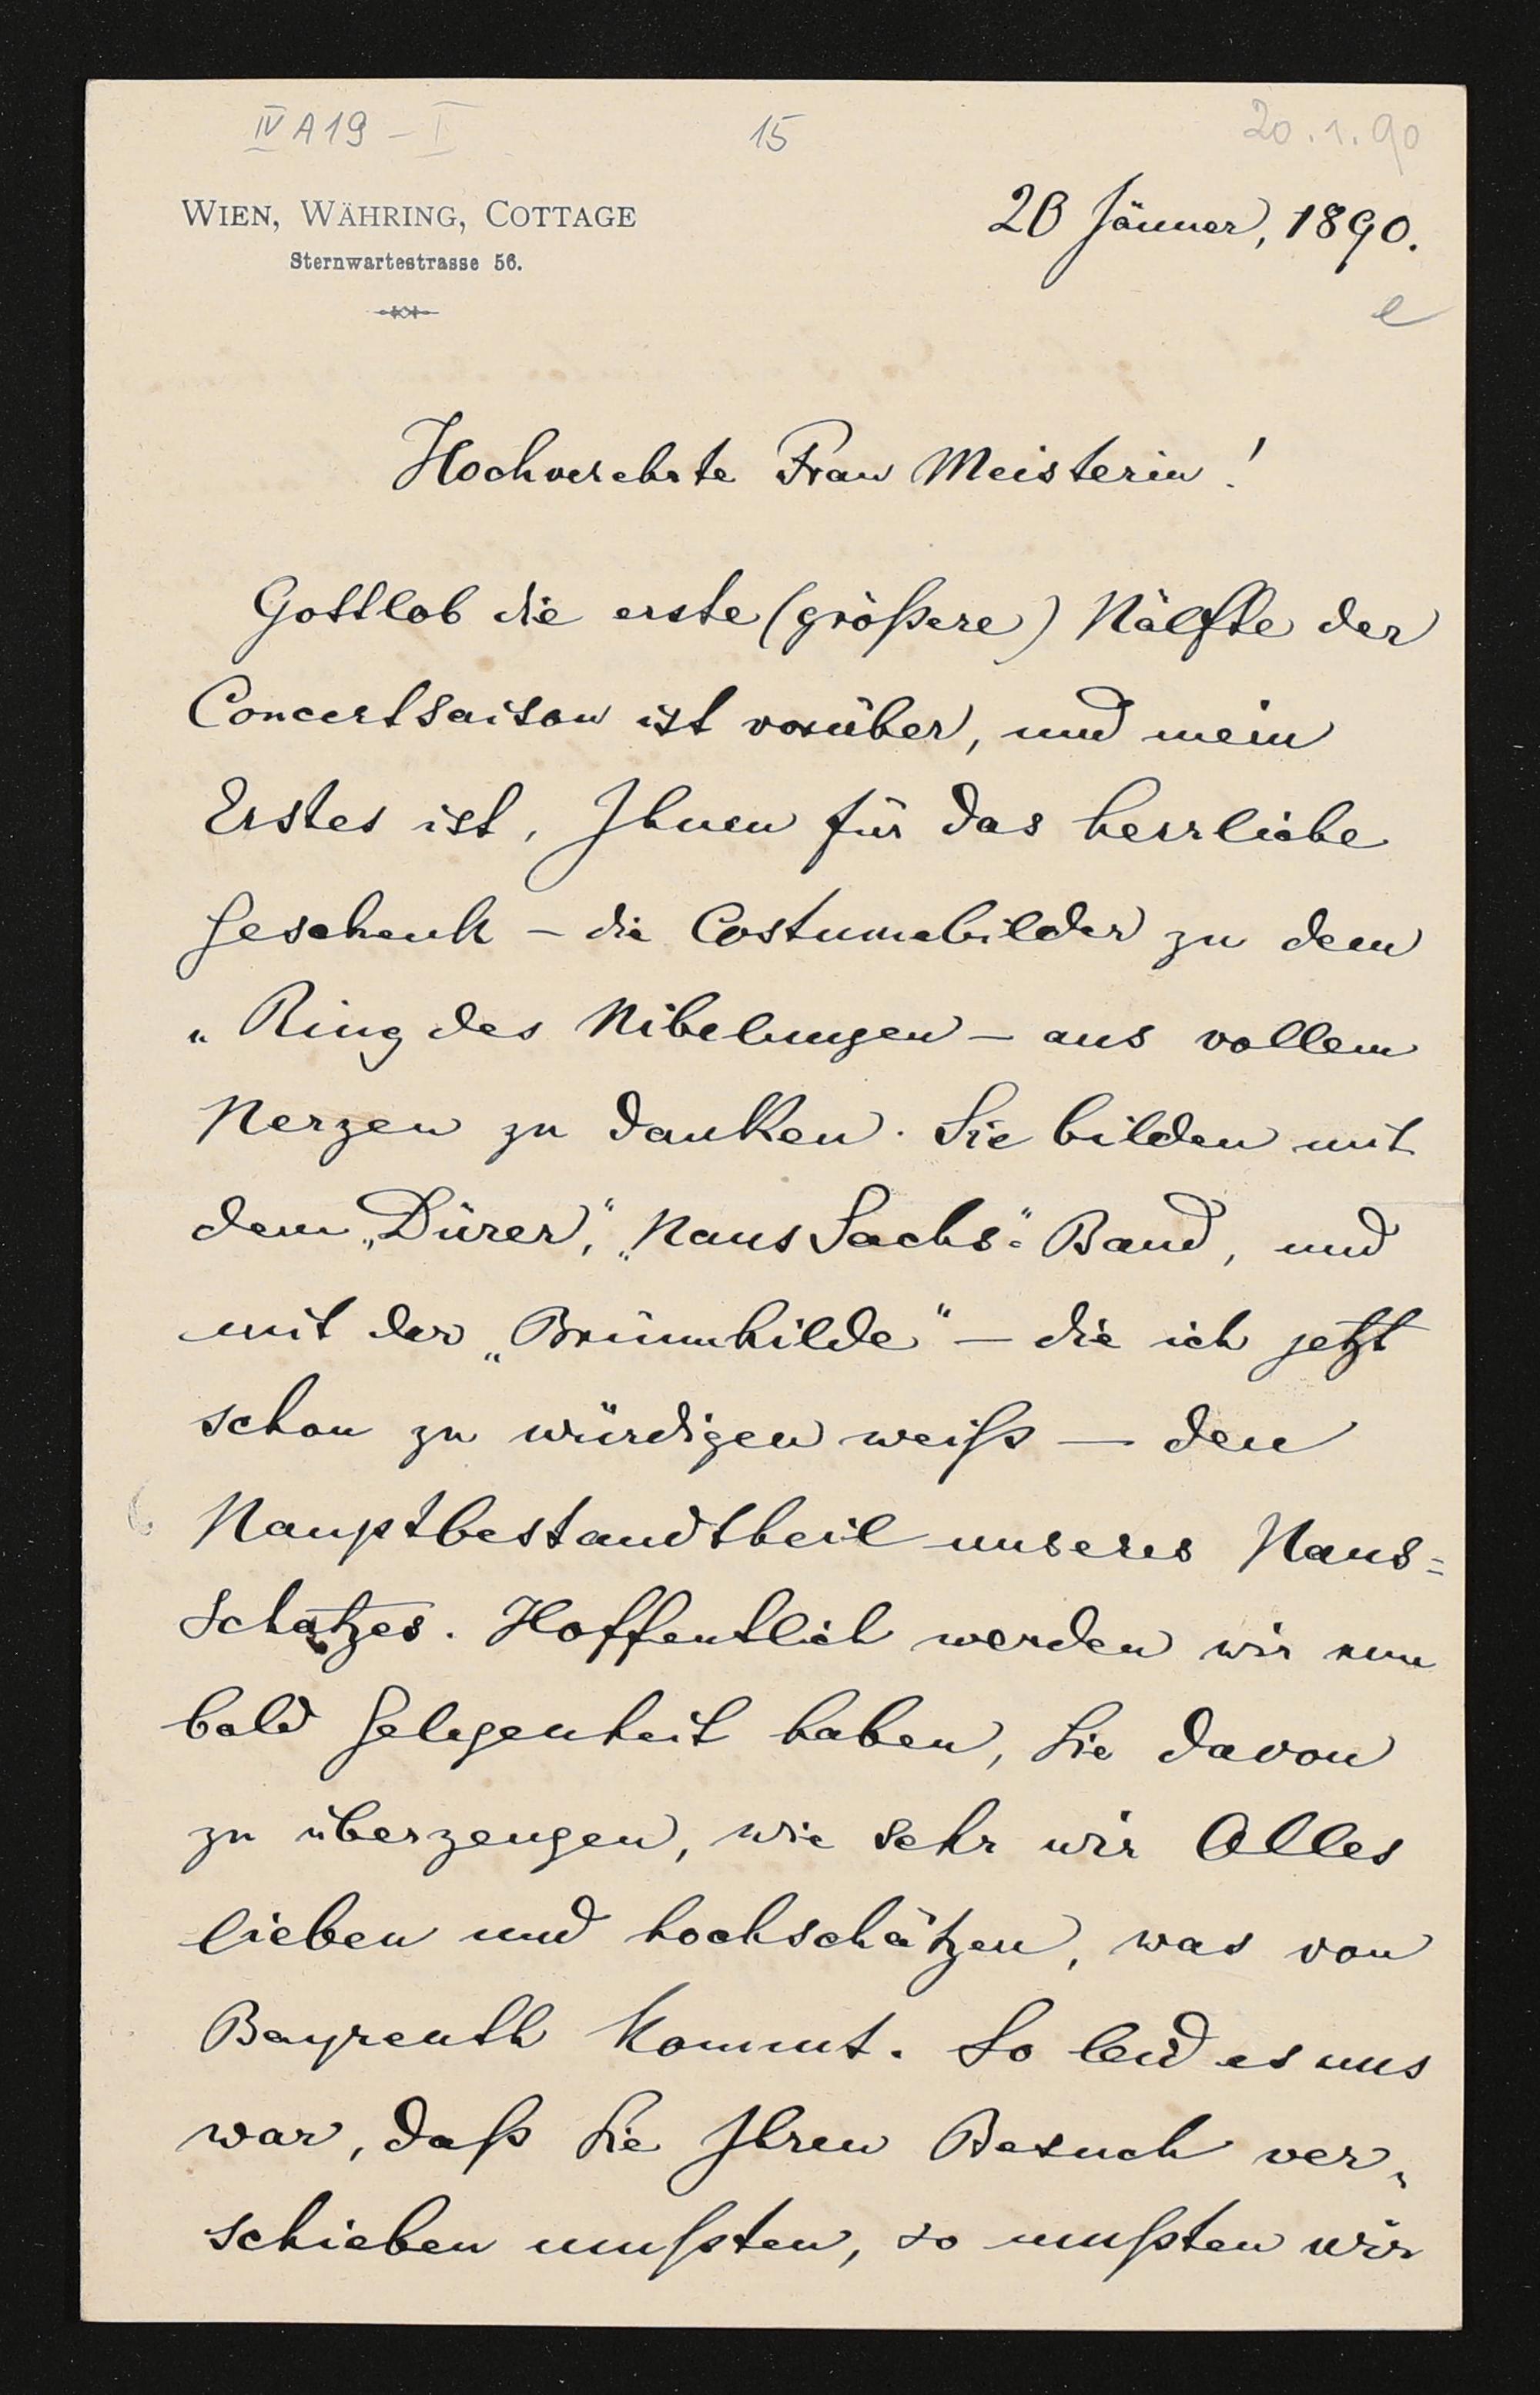 IV A 19 – I 15 20.1.90
WIEN, WÄHRING, COTTAGE
Sternwartestrasse 56.
20 Jänner, 1890.
e
Hochverehrte Frau Meisterin!
Gottlob die erste (größere) Hälfte der
Concertsaison ist vorüber, und mein
Erstes ist, Ihnen für das herrliche
Geschenk – die Costumebilder zu dem
„Ring des Nibelungen – aus vollem
Herzen zu danken. Sie bilden mit
dem „Dürer", „Hans Sachs"-Band, und
mit der „Brünnhilde" – die ich jetzt
schon zu würdigen weiß – den
Hauptbestandtheil unseres Haus=
Schatzes. Hoffentlich werden wir nun
bald Gelegenheit haben, Sie davon
zu überzeugen, wie sehr wir Alles
lieben und hochschätzen, was von
Bayreuth kommt. So leid es uns
war, daß Sie Ihren Besuch ver-
schieben mußten, so mußten wir